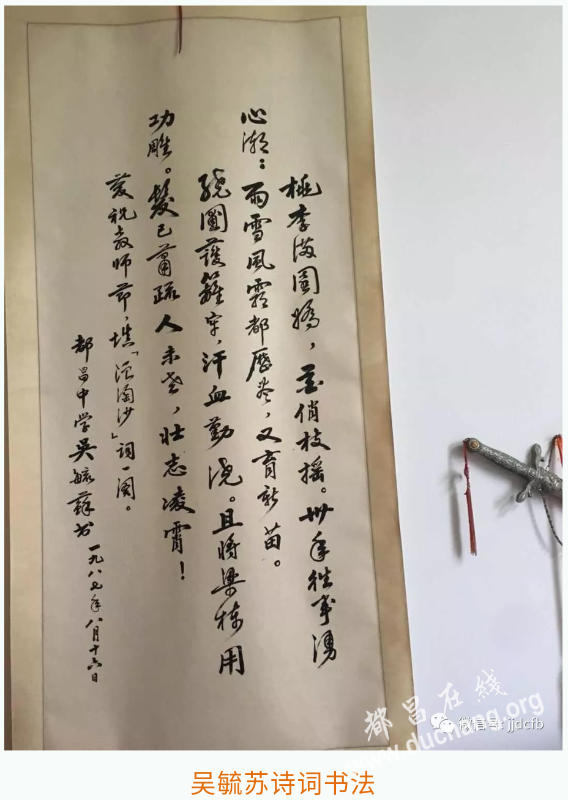 桃李满園嬌，花俏枝摇。卅年往事湧
心潮：雨雪風霜都歷尽，又育新苗。
繞園護籬牢，汗血勤澆。且將梁棟用
功雕。髮已蕭疏人未老，壮志凌霄！
慶祝教師節，填「浪淘沙」词一阕。
都昌中学吴毓蘇书 一九八七年八月十六日
都昌在线
www.duchang.org
微信号: jjdcfb
吴毓苏诗词书法